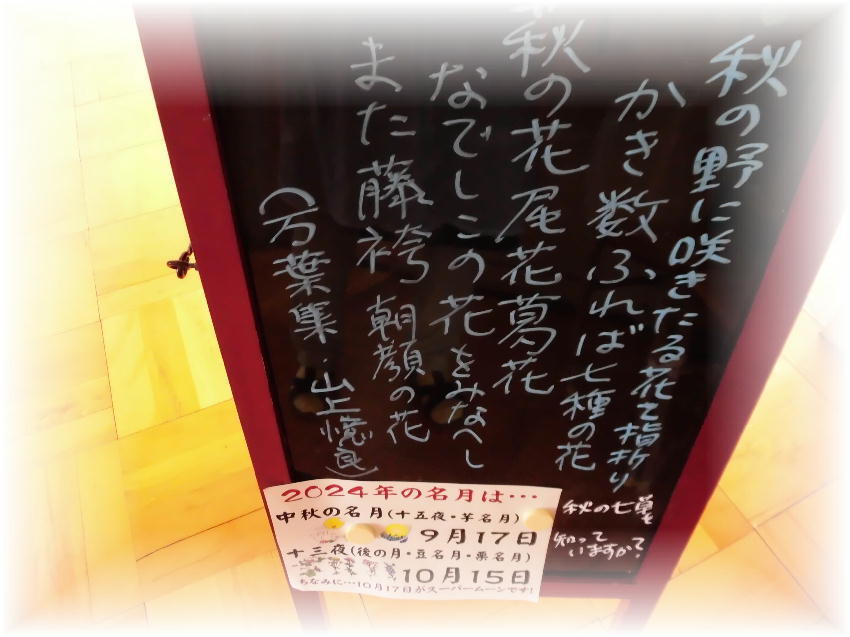 秋の野に咲きたる花を指折り
かき数ふれば七種の花
秋の花尾花葛花
なでしこの花をみなへし
また藤袴朝顔の花
(万葉集・山上憶良)
秋の七草を
知って
いますか?
2024年の名月は…
中秋の名月(十五夜・芋名月)
9月17日
十三夜(後の月・豆名月・栗名月)
10月15日
ちなみに…10月17日がスーパームーンです!